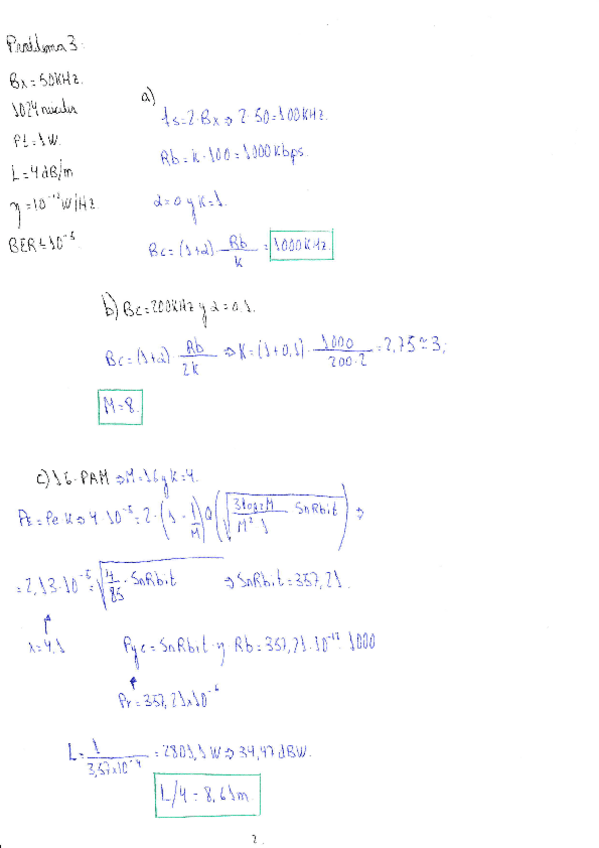 Problema 3:
Bx = 50KHz.
1024 niveles
PT = 1W.
L = 4dB/m
η = 10⁻¹² W/Hz
BER ≤ 10⁻⁵
a)
fs = 2·Bx ⇒ 2·50 = 100KHz.
Rb = k·100 = 1000 kbps.
α = 0 y K = 1.
Bc = (1+α) · Rb/k = 1000KHz.
b) Bc = 200KHz y α = 0,1.
Bc = (1+α) · Rb/2k ⇒ K = (1+0,1) · 1000/200·2 = 2,75 ≃ 3;
M = 8.
c) 16-PAM ⇒ M = 16 y K = 4.
PE = Pe K ⇒ 4·10⁻⁵ = 2·(1 - 1/M) Q(√(3log2M/M² 1 SnRbit)) ⇒
= 2,13·10⁻⁵ = √(4/85 · SnRbit) ⇒ SnRbit = 357,21.
x = 4,1
Pyc = SnRbit · η Rb = 357,21·10⁻¹² · 1000
Pr = 357,21x10⁻⁶
L = 1/3,57x10⁻⁴ = 2801,1 W ⇒ 34,47 dBW.
L/4 = 8,61m
2.